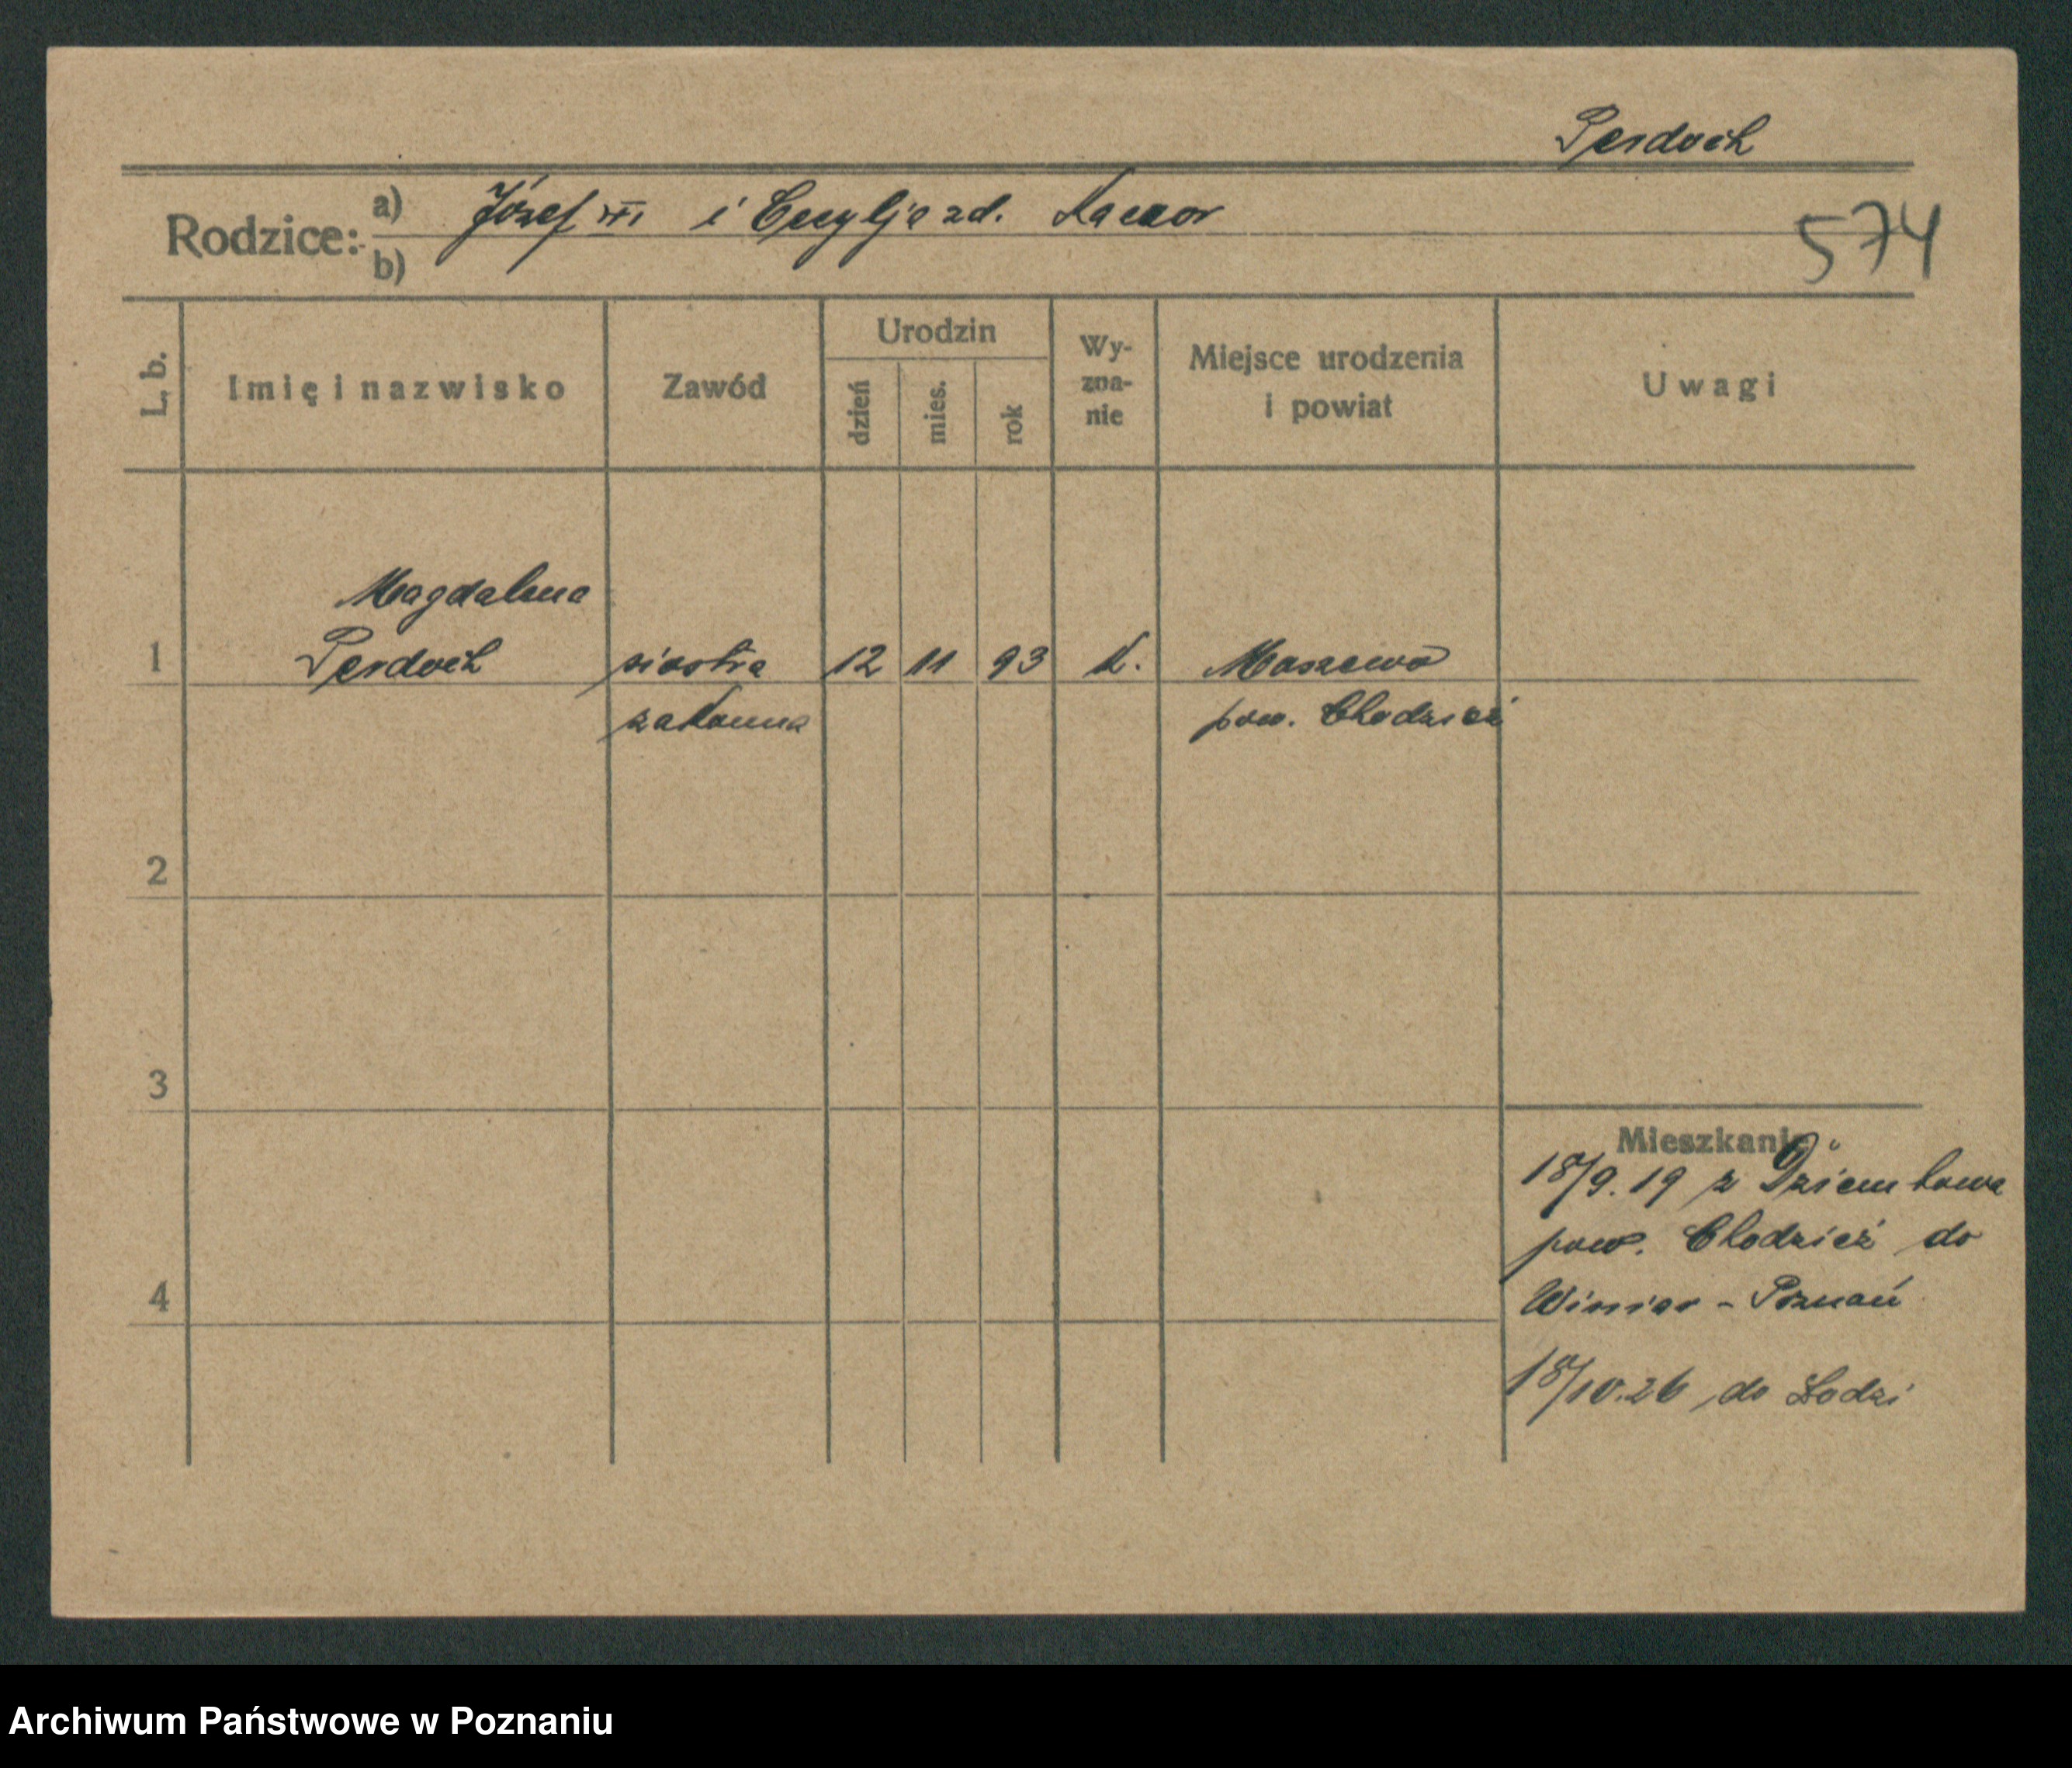 Perdoch
Rodzice: a) Józef III i Cecylja zd. Kaczor
b)
574
L. b. Imię i nazwisko Zawód Urodzin dzień mies. rok Wy-zna-nie Miejsce urodzenia i powiat Uwagi
Magdalena
1 Perdoch siostra 12 11 93 k. Maszewo
zakonna pow. Chodzież
2
3
Mieszkanie
18/9.19 z Dziembowa
pow. Chodzież do
4 Winiar - Poznań
18/10.26 do Łodzi
Archiwum Państwowe w Poznaniu